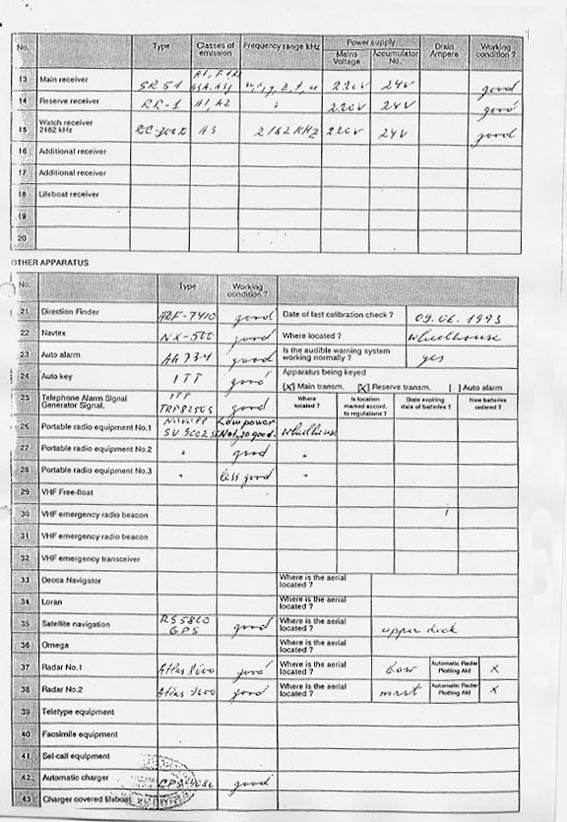 No. Type Classes of emission Frequency range kHz Power supply Mains Voltage Accumulator No. Drain Ampere Working condition ?
13 Main receiver SR 51 220V 24V good
14 Reserve receiver RR-1 A1, A2 " 220V 24V good
15 Watch receiver 2182 kHz A3 2182 KHZ 220V 24V good
16 Additional receiver
17 Additional receiver
18 Lifeboat receiver
19
20
OTHER APPARATUS
No. Type Working condition ?
21 Direction Finder good Date of last calibration check ? 09.06.1993
22 Navtex NX-500 good Where located ? wheelhouse
23 Auto alarm good Is the audible warning system working normally ? yes
24 Auto key ITT good Apparatus being keyed [X] Main transm. [X] Reserve transm. [ ] Auto alarm
25 Telephone Alarm Signal Generator Signal. ITT good Where located ? Is location marked accord. to regulations ? State expiring date of batteries ? New batteries ordered ?
26 Portable radio equipment No.1 Low power Not so good. wheelhouse
27 Portable radio equipment No.2 " good "
28 Portable radio equipment No.3 " less good "
29 VHF Free-float
30 VHF emergency radio beacon
31 VHF emergency radio beacon
32 VHF emergency transceiver
33 Decca Navigator Where is the aerial located ?
34 Loran Where is the aerial located ?
35 Satellite navigation GPS good Where is the aerial located ? upper deck
36 Omega Where is the aerial located ?
37 Radar No.1 Atlas good Where is the aerial located ? bow Automatic Radar Plotting Aid X
38 Radar No.2 Atlas good Where is the aerial located ? mast Automatic Radar Plotting Aid X
39 Teletype equipment
40 Facsimile equipment
41 Sel-call equipment
42 Automatic charger good
43 Charger covered lifeboat